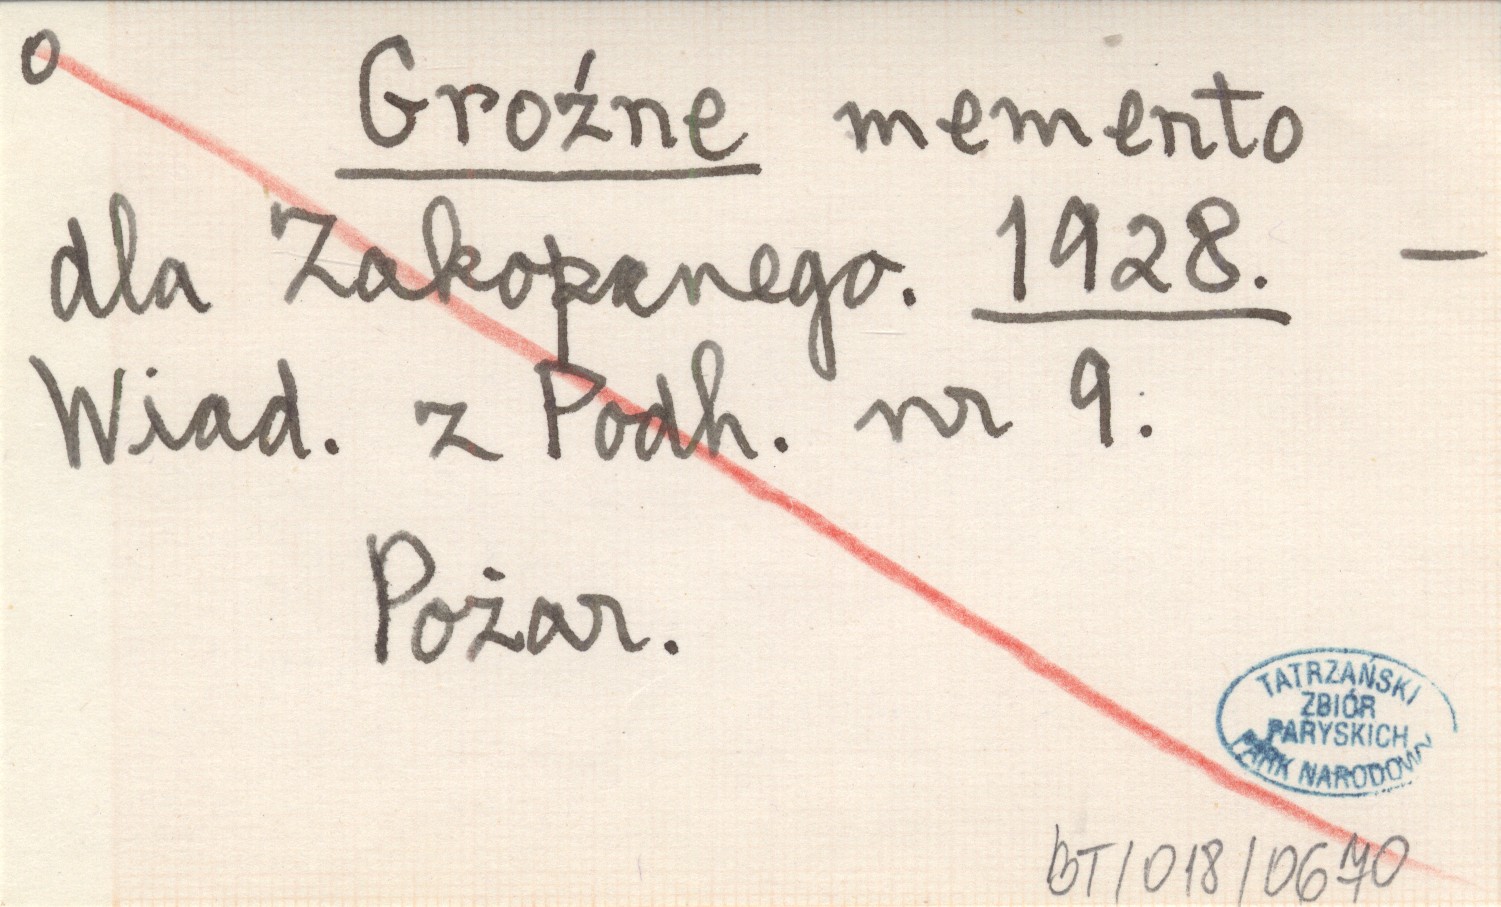 o
Groźne memento
dla Zakopanego. 1928. —
Wiad. z Podh. nr 9.
Pożar.
TATRZAŃSKI
ZBIÓR
PARYSKICH
PARK NARODOWY
BT/018/0670